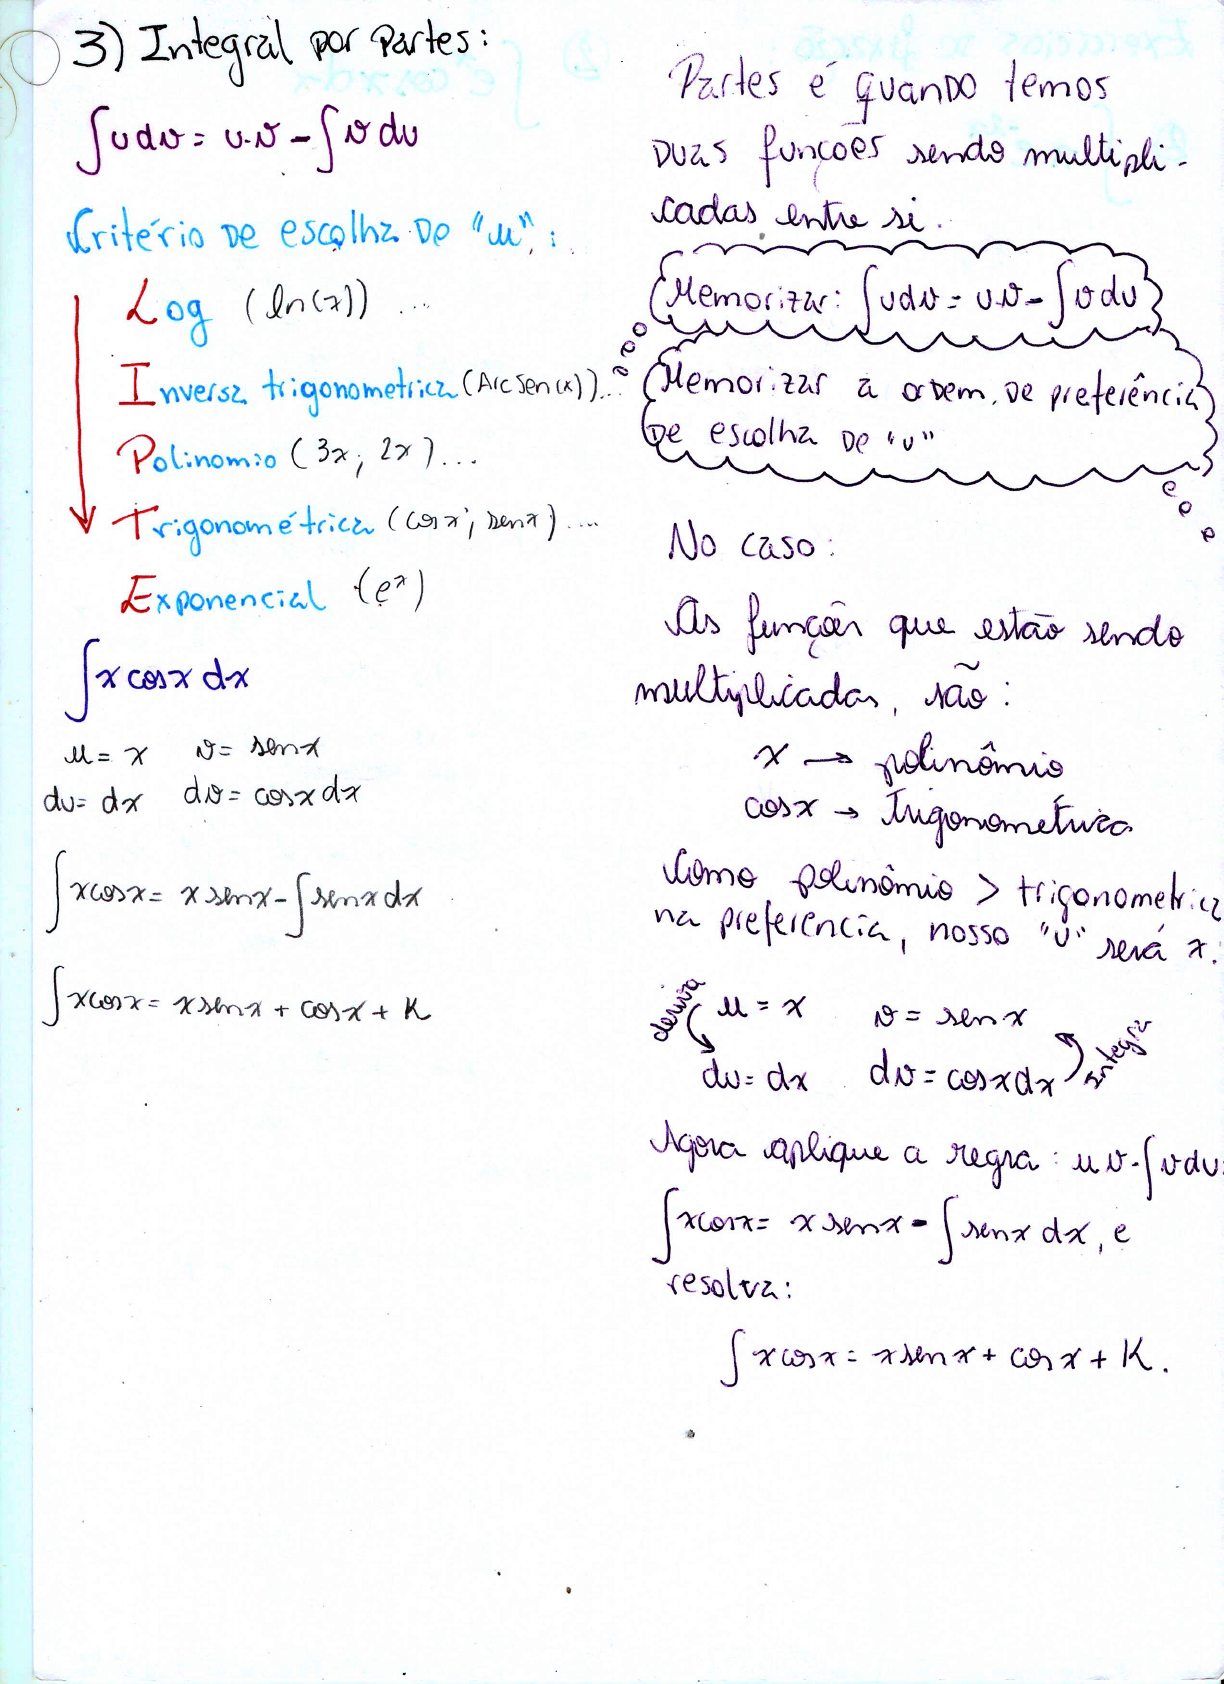 3) Integral por Partes:
∫u dv = u.v - ∫v du
Critério de escolha de "u":
Log (ln(x)) ...
Inversa trigonometrica (Arcsen(x))...
Polinomio (3x; 2x)...
Trigonométrica (cosx; senx)....
Exponencial (eˣ)
∫x cosx dx
u = x v = senx
du = dx dv = cosx dx
∫xcosx = x senx - ∫senx dx
∫xcosx = xsenx + cosx + K
Partes é quando temos
duas funções sendo multipli-
cadas entre si.
Memorizar: ∫udv = u.v - ∫v du
Memorizar a ordem de preferência
de escolha de "u"
No caso:
As funções que estão sendo
multiplicadas, são:
x → polinômio
cosx → trigonométrica
Como polinômio > trigonometrica
na preferencia, nosso "u" será x.
deriva u = x v = senx
du = dx dv = cosxdx integra
Agora aplique a regra: uv - ∫vdu:
∫xcosx = x senx - ∫senx dx, e
resolva:
∫xcosx = xsenx + cosx + K.